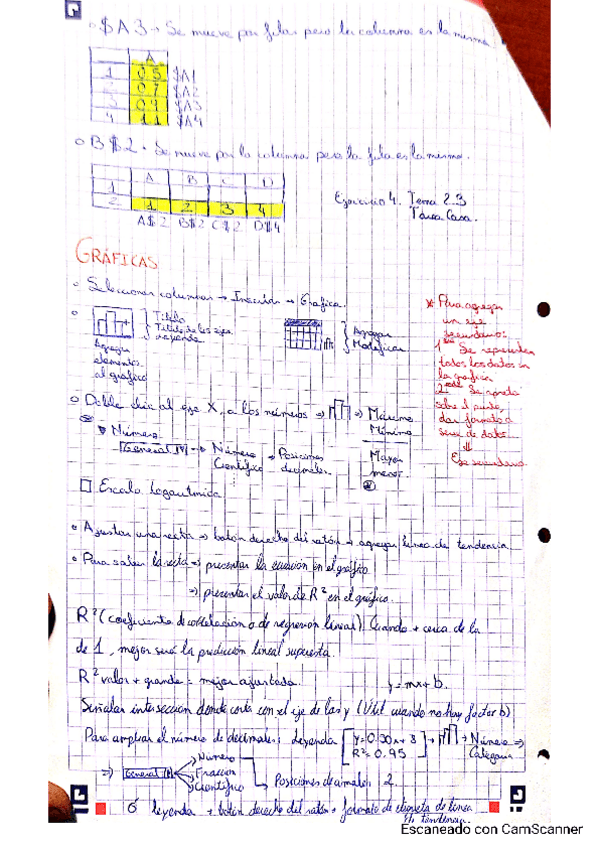 ○ $A3 → Se mueve por filas pero la columna es la misma.
A
1 0,5 $A1
2 0,7 $A2
3 0,9 $A3
4 1,1 $A4
○ B$2 → Se mueve por la columna pero la fila es la misma.
A B C D
1
2 1 2 3 4
A$2 B$2 C$2 D$
Ejercicio 4. Tema 2.3
Tarea Casa.
GRÁFICAS
○ Seleccionar columnas → Insertar → Gráfica.
○ Título
Título de los ejes
Leyenda
Agregar
elementos
al gráfico
Agregar
Modificar
* Para agregar
un eje
secundario:
1º Se representan
todos los datos en
la gráfica
2º Se
sobre el punto,
dar formato a
serie de datos
⇓
Eje secundario
○ Doble clic al eje X, a los números ⇒ ⇒ Máximo
Mínimo
Mayor
menor.
▼ Número
General ▼ → Número
Científico
⋮
→ Posiciones
decimales.
□ Escala logarítmica
○ Ajustar una recta ⇒ botón derecho del ratón → agregar línea de tendencia
○ Para saber la recta ⇒ presentar la ecuación en el gráfico
⇒ presentar el valor de R² en el gráfico.
R² (coeficiente de correlación o de regresión lineal). Cuando + cerca de la
de 1, mejor será la predicción lineal supuesta.
R² valor + grande = mejor ajustada.
y = mx + b.
Señalar intersección donde corta con el eje de las y (Útil cuando no hay factor b)
Para ampliar el número de decimales: Leyenda [y=0.30x+8 → → Número ⇒
R²=0.95 Categoría
⇒ General ▼ Número
Fracción
Científico
Posiciones decimales 2.
ó leyenda → botón derecho del ratón → formato de etiqueta de línea
de tendencia.
Escaneado con CamScanner